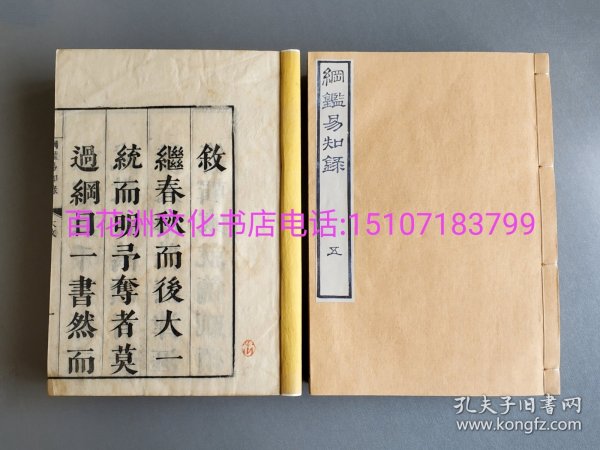 敘
繼春秋而後大一
統而明予奪者莫
過綱目一書然而
綱鑑易知錄
五
百花洲文化书店电话:15107183799
孔夫子旧书网
www.kongfz.com